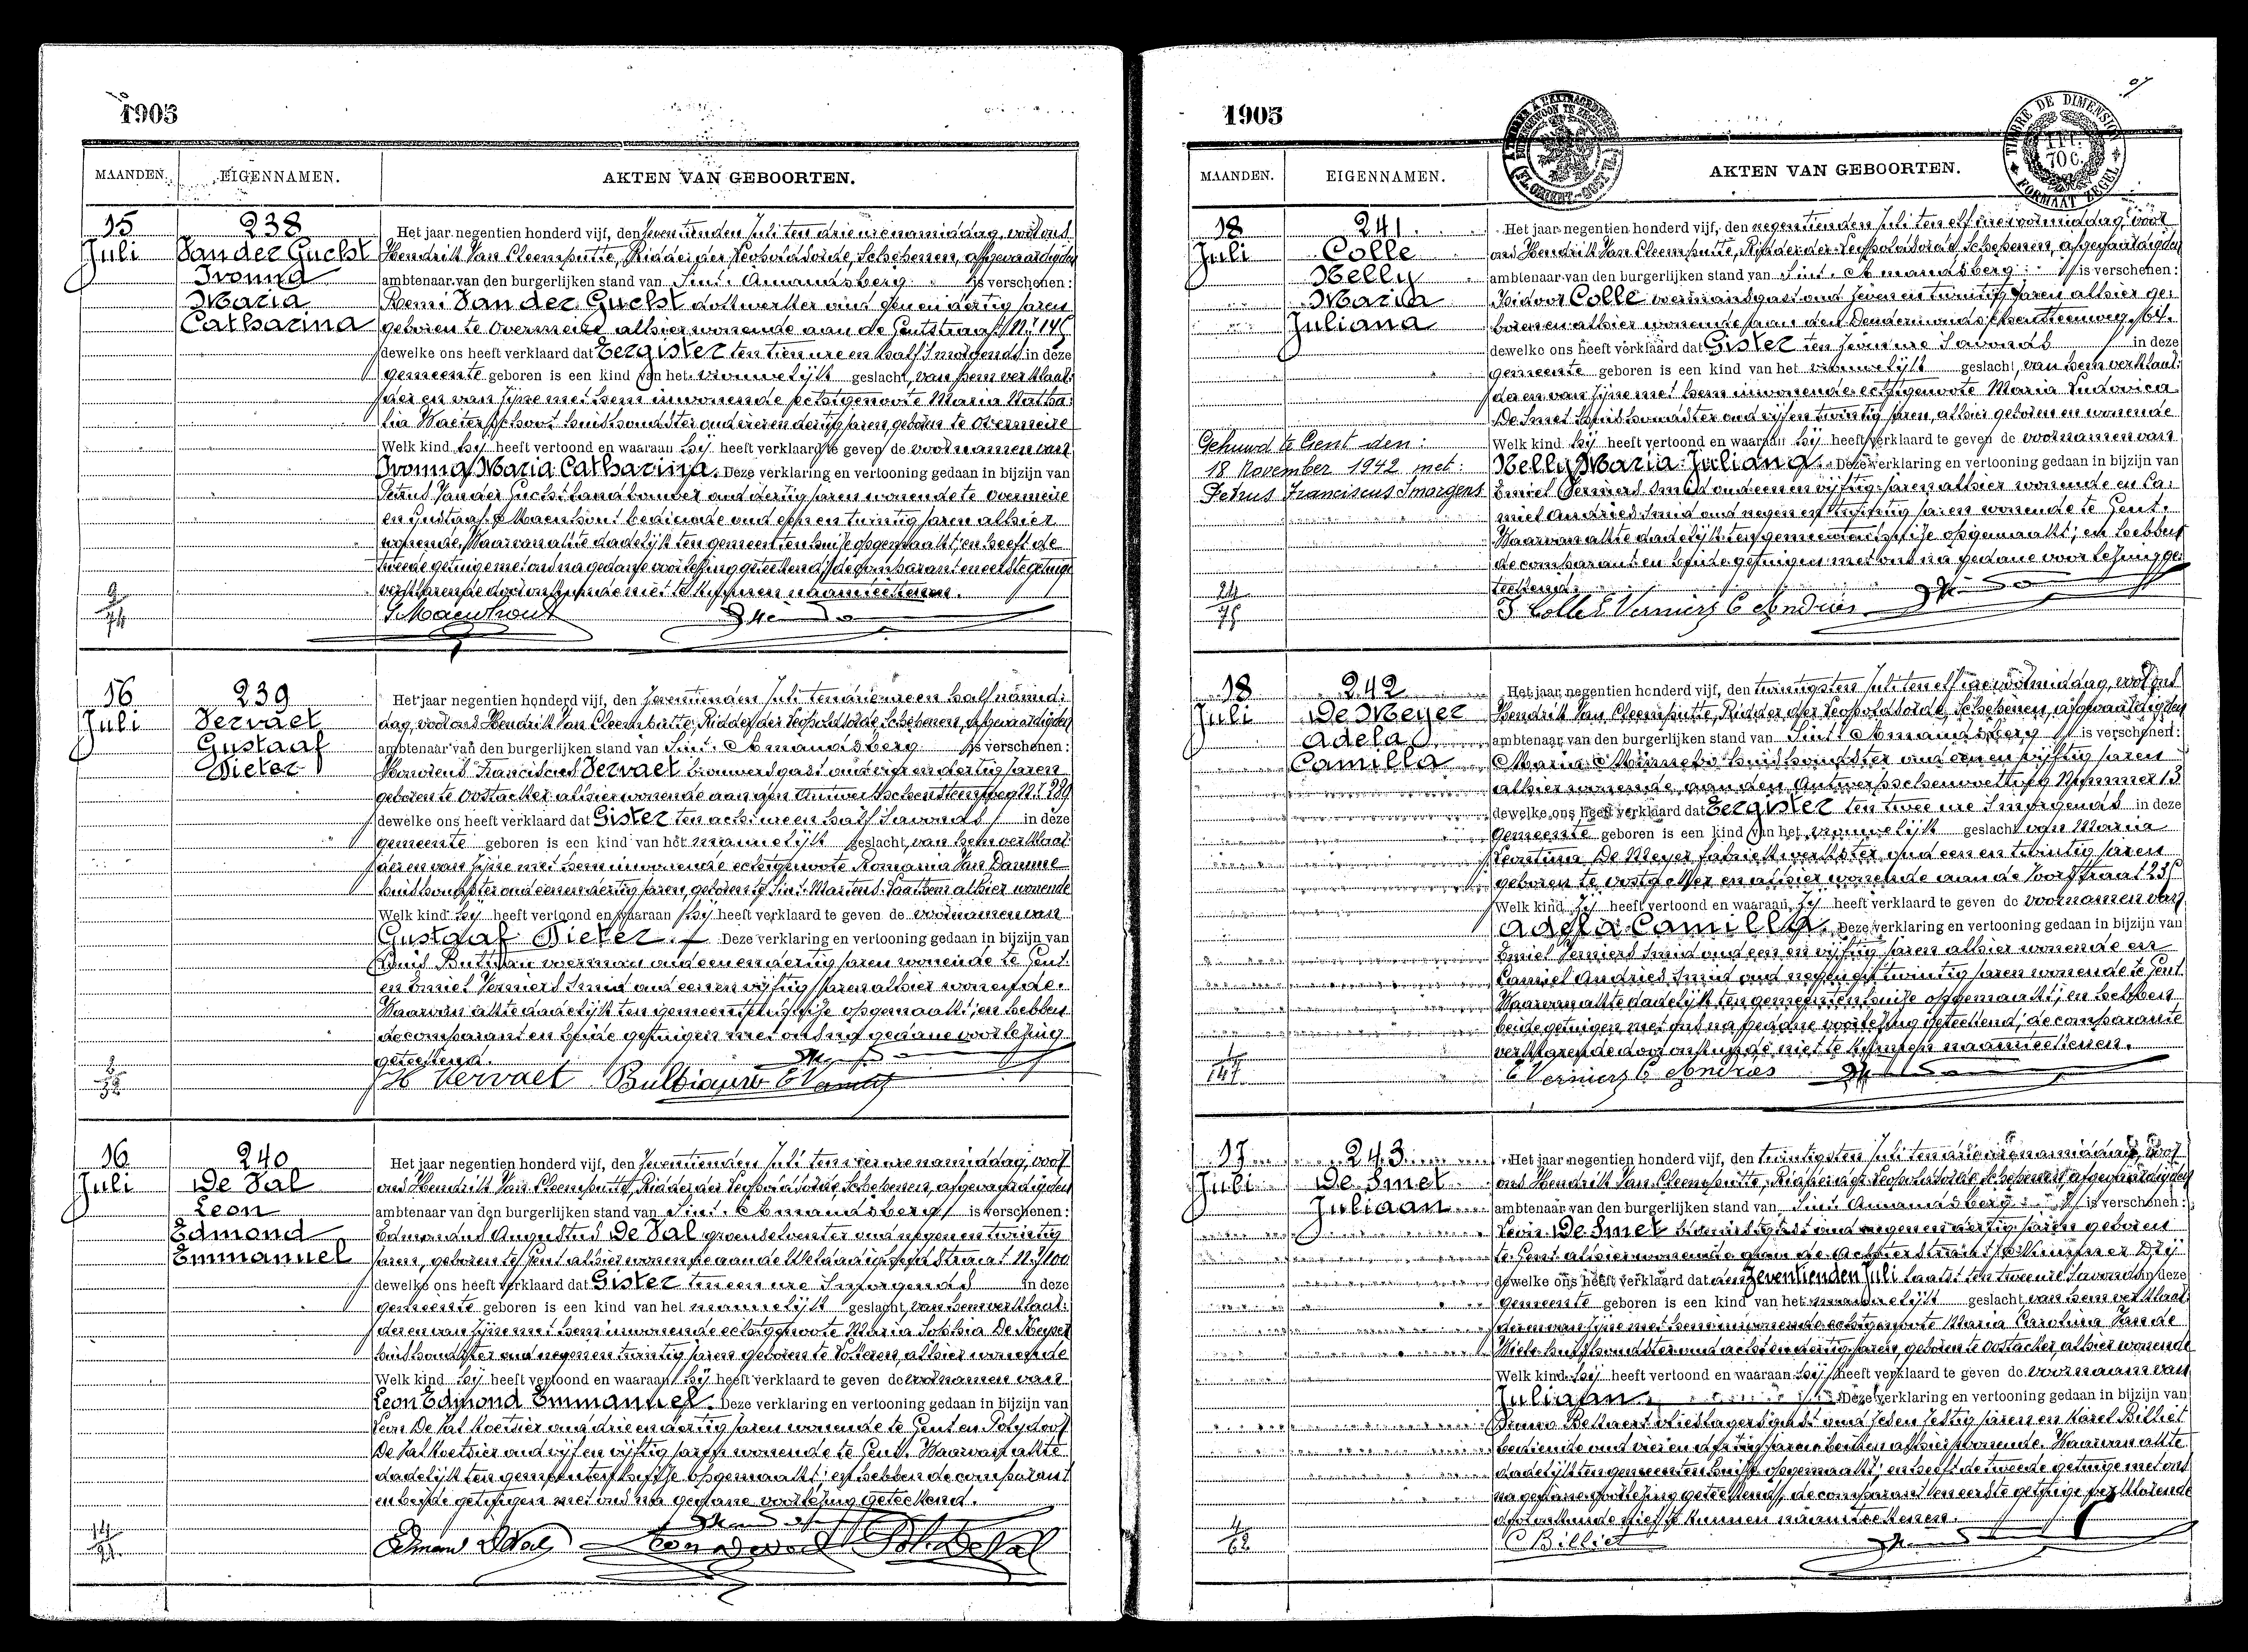 1905
MAANDEN. EIGENNAMEN. AKTEN VAN GEBOORTEN.
15
Juli
238
Van der Gucht
Ivonna
Maria
Catharina
Het jaar negentien honderd vijf, den zeventienden Juli ten drie ure namiddag, voor ons
Hendrik Van Cleemputte, Ridder der Leopoldsorde, Schepenen, afgevaardigden
ambtenaar van den burgerlijken stand van Sint Amandsberg is verschenen:
Remi Van der Gucht dokwerker oud een en dertig jaren
geboren te Overmeire alhier wonende aan de Gentstraat N.r
dewelke ons heeft verklaard dat Eergister ten tien ure en half 's morgends in deze
gemeente geboren is een kind van het vrouwelijk geslacht, van hem verklaar-
der en van zijne met hem inwonende echtgenoote Maria Natha-
lia huishoudster oud drie en dertig jaren geboren te Overmeire
Welk kind hij heeft vertoond en waaraan hij heeft verklaard te geven de voornamen van
Ivonna Maria Catharina. Deze verklaring en vertooning gedaan in bijzijn van
Petrus Van der Gucht landbouwer oud dertig jaren wonende te Overmeire
en Gustaaf Maenhout bediende oud een en twintig jaren alhier
wonende, Waarvan akte dadelijk ten gemeentenhuize opgemaakt; en heeft de
tweede getuige met ons na gedane voorlezing geteekend, de comparant en eerste getuige
verklarende door onkunde niet te kunnen naamteekenen.
G Maenhout
9
74
16
Juli
239
Vervaet
Gustaaf
Pieter
Het jaar negentien honderd vijf, den zeventienden Juli ten drie ure en half namid-
dag, voor ons Hendrik Van Cleemputte, Ridder der Leopoldsorde, Schepenen, afgevaardigden
ambtenaar van den burgerlijken stand van Sint Amandsberg is verschenen:
Honorius Franciscus Vervaet brouwersgast oud vier en dertig jaren
geboren te Oostacker alhier wonende aan den Antwerpschensteenweg N.r
dewelke ons heeft verklaard dat Gister ten acht ure en half 's avonds in deze
gemeente geboren is een kind van het mannelijk geslacht, van hem verklaar-
der en van zijne met hem inwonende echtgenoote Romania Van Damme
huishoudster oud een en dertig jaren, geboren te Sint Martens Laathem alhier wonende
Welk kind hij heeft vertoond en waaraan hij heeft verklaard te geven de voornamen van
Gustaaf Pieter. Deze verklaring en vertooning gedaan in bijzijn van
Louis voerman oud een en dertig jaren wonende te Gent
en Emiel Verniers Smid oud een en vijftig jaren alhier wonende.
Waarvan akte dadelijk ten gemeentenhuize opgemaakt; en hebben
de comparant en beide getuigen met ons na gedane voorlezing
geteekend.
H Vervaet
8
32
16
Juli
240
De Val
Leon
Edmond
Emmanuel
Het jaar negentien honderd vijf, den zeventienden Juli ten vier ure namiddag, voor
ons Hendrik Van Cleemputte, Ridder der Leopoldsorde, Schepenen, afgevaardigden
ambtenaar van den burgerlijken stand van Sint Amandsberg is verschenen:
Edmondus Augustus De Val groenselventer oud negen en twintig
jaren, geboren te Gent alhier wonende aan de Weldadigheidstraat N.r 100
dewelke ons heeft verklaard dat Gister ten een ure 's morgends in deze
gemeente geboren is een kind van het mannelijk geslacht, van hem verklaar-
der en van zijne met hem inwonende echtgenoote Maria Sophia De Keyser
huishoudster oud negen en twintig jaren geboren te Lokeren, alhier wonende
Welk kind hij heeft vertoond en waaraan hij heeft verklaard te geven de voornamen van
Leon Edmond Emmanuel. Deze verklaring en vertooning gedaan in bijzijn van
Leon De Val koetsier oud drie en dertig jaren wonende te Gent en Polydoor
De Val koetsier oud vijf en vijftig jaren wonende te Gent. Waarvan akte
dadelijk ten gemeentenhuize opgemaakt; en hebben de comparant
en beide getuigen met ons na gedane voorlezing geteekend.
14
21
1905
MAANDEN. EIGENNAMEN. AKTEN VAN GEBOORTEN.
TIMBRE DE DIMENSION
FORMAAT ZEGEL
18
Juli
241
Colle
Nelly
Maria
Juliana
Het jaar negentien honderd vijf, den negentienden Juli ten elf ure voormiddag, voor
ons Hendrik Van Cleemputte, Ridder der Leopoldsorde, Schepenen, afgevaardigden
ambtenaar van den burgerlijken stand van Sint Amandsberg is verschenen:
Isidoor Colle voermansgast oud zeven en twintig jaren alhier ge-
boren en alhier wonende aan den Dendermondschensteenweg, 64.
dewelke ons heeft verklaard dat Gister ten zeven ure 's avonds in deze
gemeente geboren is een kind van het vrouwelijk geslacht, van hem verklaar-
der en van zijne met hem inwonende echtgenoote Maria Ludovica
De Smet huishoudster oud vijf en twintig jaren, alhier geboren en wonende
Welk kind hij heeft vertoond en waaraan hij heeft verklaard te geven de voornamen van
Nelly Maria Juliana. Deze verklaring en vertooning gedaan in bijzijn van
Emiel Verniers Smid oud een en vijftig jaren alhier wonende en Ca-
miel Andries Smid oud negen en twintig jaren wonende te Gent.
Waarvan akte dadelijk ten gemeentenhuize opgemaakt; en hebben
de comparant en beide getuigen met ons na gedane voorlezing ge-
teekend.
J Colle E Verniers C Andries
Gehuwd te Gent den:
18 November 1942 met:
Petrus Franciscus Smorgens
24
75
18
Juli
242
De Meyer
Adela
Camilla
Het jaar negentien honderd vijf, den twintigsten Juli ten elf ure voormiddag, voor ons
Hendrik Van Cleemputte, Ridder der Leopoldsorde, Schepenen, afgevaardigden
ambtenaar van den burgerlijken stand van Sint Amandsberg is verschenen:
Maria huishoudster oud een en vijftig jaren
alhier wonende aan den Nummer 13
dewelke ons heeft verklaard dat Eergister ten twee ure 's morgends in deze
gemeente geboren is een kind van het vrouwelijk geslacht van Maria
Leontina De Meyer fabriekwerkster oud een en twintig jaren
geboren te en alhier wonende aan de
Welk kind zij heeft vertoond en waaraan zij heeft verklaard te geven de voornamen van
Adela Camilla. Deze verklaring en vertooning gedaan in bijzijn van
Emiel Verniers Smid oud een en vijftig jaren alhier wonende en
Camiel Andries Smid oud negen en twintig jaren wonende te Gent
Waarvan akte dadelijk ten gemeentenhuize opgemaakt; en hebben
beide getuigen met ons na gedane voorlezing geteekend, de comparante
verklarende door onkunde niet te kunnen naamteekenen.
E Verniers C Andries
1
147
17
Juli
243
De Smet
Juliaan
Het jaar negentien honderd vijf, den twintigsten Juli ten drie ure namiddag, voor
ons Hendrik Van Cleemputte, Ridder der Leopoldsorde, Schepenen, afgevaardigden
ambtenaar van den burgerlijken stand van Sint Amandsberg is verschenen:
Levin De Smet oud negen en dertig jaren geboren
te Gent alhier wonende aan de Achterstraat Nummer Drij
dewelke ons heeft verklaard dat den Zeventienden Juli laatst ten twee ure 's avonds in deze
gemeente geboren is een kind van het mannelijk geslacht van hem verklaar-
der en van zijne met hem inwonende echtgenoote Maria Carolina Van de
Wiele huishoudster oud acht en dertig jaren, geboren te Oostacker, alhier wonende
Welk kind hij heeft vertoond en waaraan hij heeft verklaard te geven de voornaam van
Juliaan. Deze verklaring en vertooning gedaan in bijzijn van
Bruno oud zes en zestig jaren en Karel Billiet
bediende oud vier en dertig jaren beiden alhier wonende. Waarvan akte
dadelijk ten gemeentenhuize opgemaakt; en heeft de tweede getuige met ons
na gedane voorlezing geteekend, de comparant en eerste getuige verklarende
door onkunde niet te kunnen naamteekenen.
C Billiet
4
62